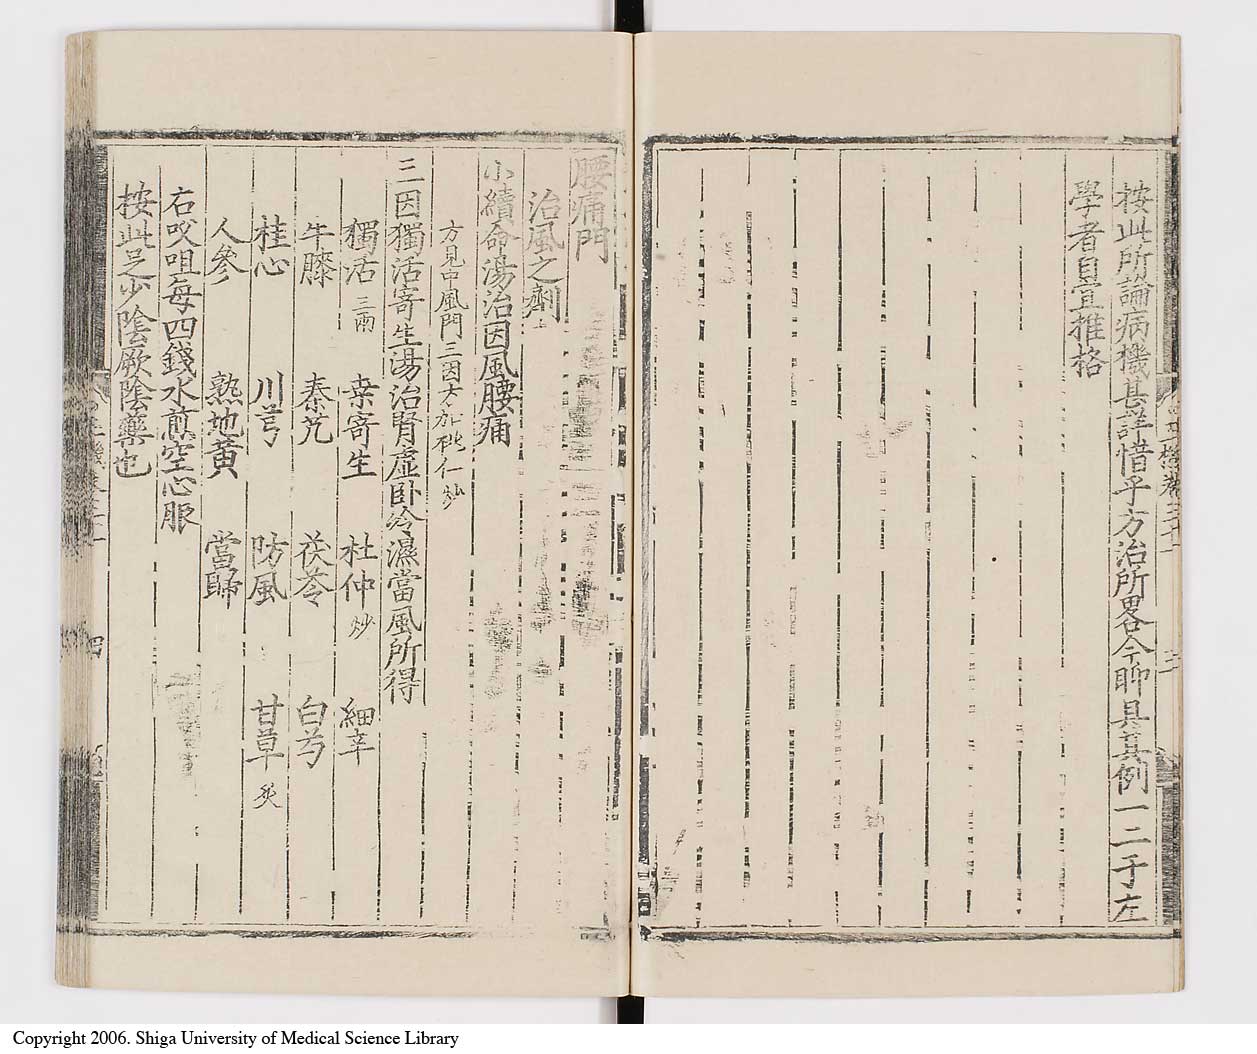 按此所論病機甚詳惜乎方治所畧今聊具其例一二于左
學者自宜推格
腰痛門
治風之劑
小續命湯治因風腰痛
方見中風門三因方加桃仁炒
三因獨活寄生湯治腎虛臥冷濕當風所得
獨活三兩 桑寄生 杜仲炒 細辛
牛膝 秦艽 茯苓 白芍
桂心 川芎 防風 甘草炙
人參 熟地黃 當歸
右㕮咀每四錢水煎空心服
按此足少陰厥陰藥也
四
Copyright 2006. Shiga University of Medical Science Library